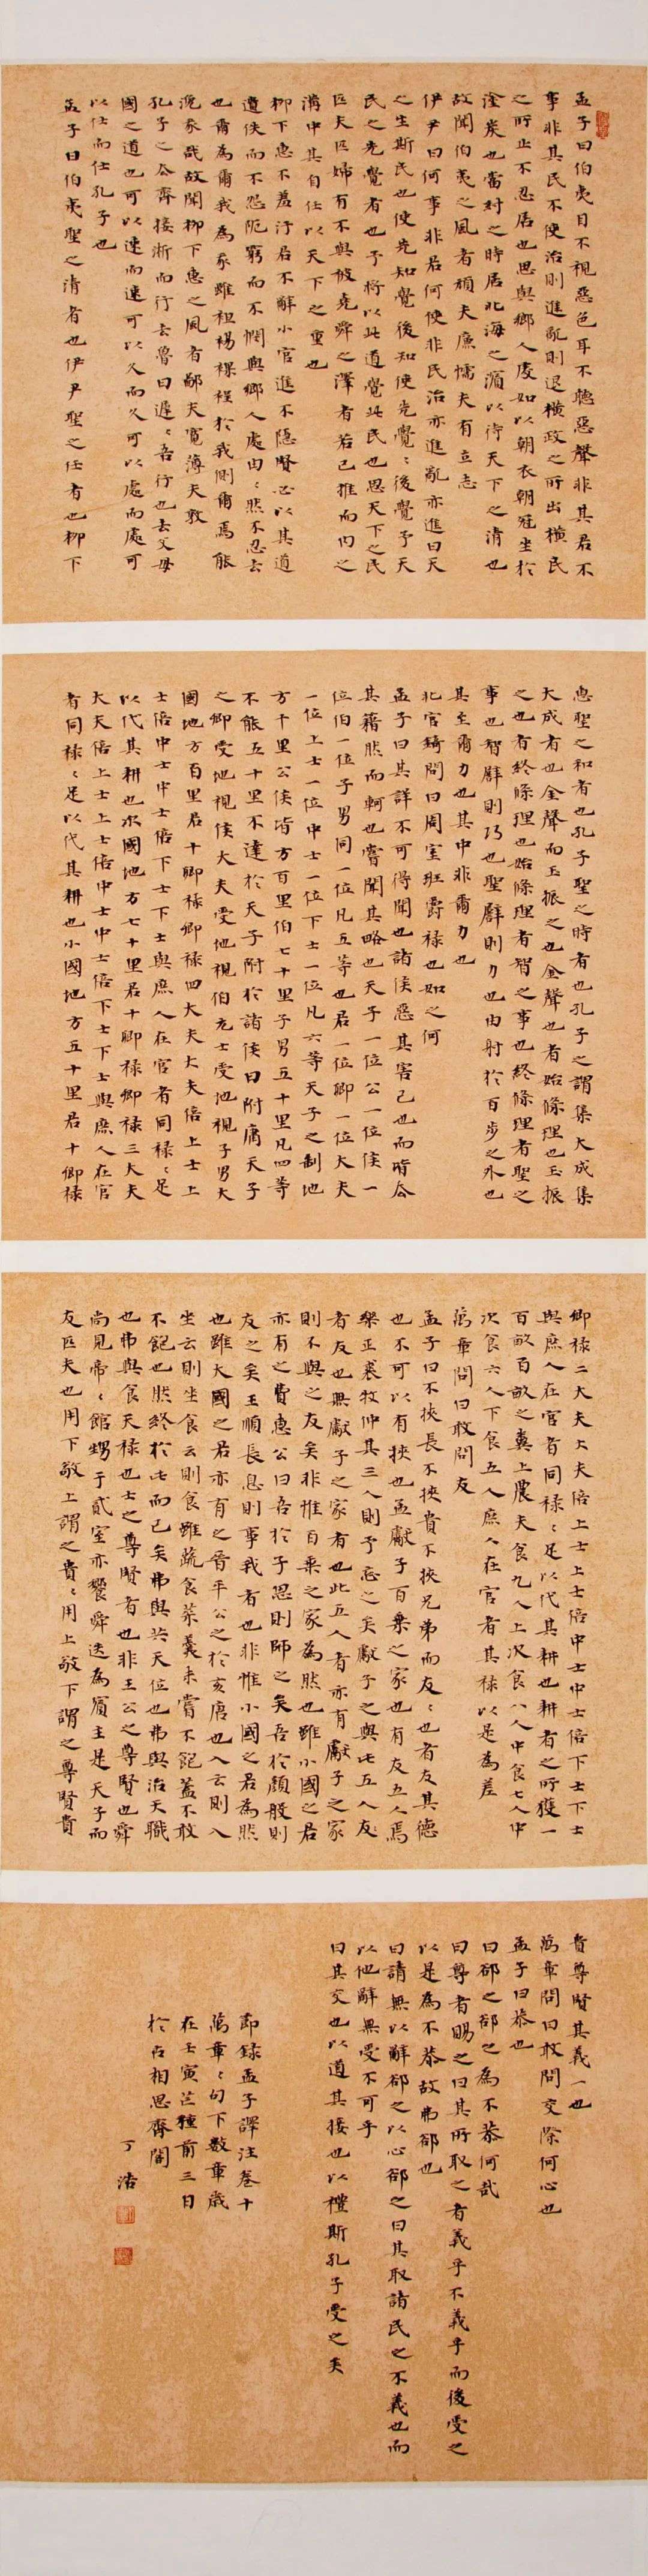 孟子曰伯夷目不視惡色耳不聽惡聲非其君不
事非其民不使治則進亂則退橫政之所出橫民
之所止不忍居也思與鄉人處如以朝衣朝冠坐於
塗炭也當紂之時居北海之濱以待天下之清也
故聞伯夷之風者頑夫廉懦夫有立志
伊尹曰何事非君何使非民治亦進亂亦進曰天
之生斯民也使先知覺後知使先覺〻後覺予天
民之先覺者也予將以此道覺此民也思天下之民
匹夫匹婦有不與被堯舜之澤者若己推而內之
溝中其自任以天下之重也
柳下惠不羞汙君不辭小官進不隱賢必以其道
遺佚而不怨阨窮而不憫與鄉人處由〻然不忍去
也爾為爾我為我雖袒裼裸裎於我側爾焉能
浼我哉故聞柳下惠之風者鄙夫寬薄夫敦
孔子之去齊接淅而行去魯曰遲〻吾行也去父母
國之道也可以速而速可以久而久可以處而處可
以仕而仕孔子也
孟子曰伯夷聖之清者也伊尹聖之任者也柳下
惠聖之和者也孔子聖之時者也孔子之謂集大成集
大成者也金聲而玉振之也金聲也者始條理也玉振
之也者終條理也始條理者智之事也終條理者聖之
事也智辟則巧也聖辟則力也由射於百步之外也
其至爾力也其中非爾力也
北宮錡問曰周室班爵祿也如之何
孟子曰其詳不可得聞也諸侯惡其害己也而皆去
其籍然而軻也嘗聞其略也天子一位公一位侯一
位伯一位子男同一位凡五等也君一位卿一位大夫
一位上士一位中士一位下士一位凡六等天子之制地
方千里公侯皆方百里伯七十里子男五十里凡四等
不能五十里不達於天子附於諸侯曰附庸天子
之卿受地視侯大夫受地視伯元士受地視子男大
國地方百里君十卿祿卿祿四大夫大夫倍上士上
士倍中士中士倍下士下士與庶人在官者同祿〻足
以代其耕也次國地方七十里君十卿祿卿祿三大夫
大夫倍上士上士倍中士中士倍下士下士與庶人在官
者同祿〻足以代其耕也小國地方五十里君十卿祿
卿祿二大夫大夫倍上士上士倍中士中士倍下士下士
與庶人在官者同祿〻足以代其耕也耕者之所獲一
百畝百畝之糞上農夫食九人上次食八人中食七人中
次食六人下食五人庶人在官者其祿以是為差
萬章問曰敢問友
孟子曰不挾長不挾貴不挾兄弟而友〻也者友其德
也不可以有挾也孟獻子百乘之家也有友五人焉
樂正裘牧仲其三人則予忘之矣獻子之與此五人友
者友也無獻子之家者也此五人者亦有獻子之家
則不與之友矣非惟百乘之家為然也雖小國之君
亦有之費惠公曰吾於子思則師之矣吾於顏般則
友之矣王順長息則事我者也非惟小國之君為然
也雖大國之君亦有之晉平公之於亥唐也入云則入
坐云則坐食云則食雖蔬食菜羹未嘗不飽蓋不敢
不飽也然終於此而已矣弗與共天位也弗與治天職
也弗與食天祿也士之尊賢者也非王公之尊賢也舜
尚見帝〻館甥于貳室亦饗舜迭為賓主是天子而
友匹夫也用下敬上謂之貴〻用上敬下謂之尊賢貴
貴尊賢其義一也
萬章問曰敢問交際何心也
孟子曰恭也
曰卻之卻之為不恭何哉
曰尊者賜之曰其所取之者義乎不義乎而後受之
以是為不恭故弗卻也
曰請無以辭卻之以心卻之曰其取諸民之不義也而
以他辭無受不可乎
曰其交也以道其接也以禮斯孔子受之矣
節錄孟子譯注卷十
萬章〻句下數章歲
在壬寅芒種前三日
於古相思齋閣
丁浩